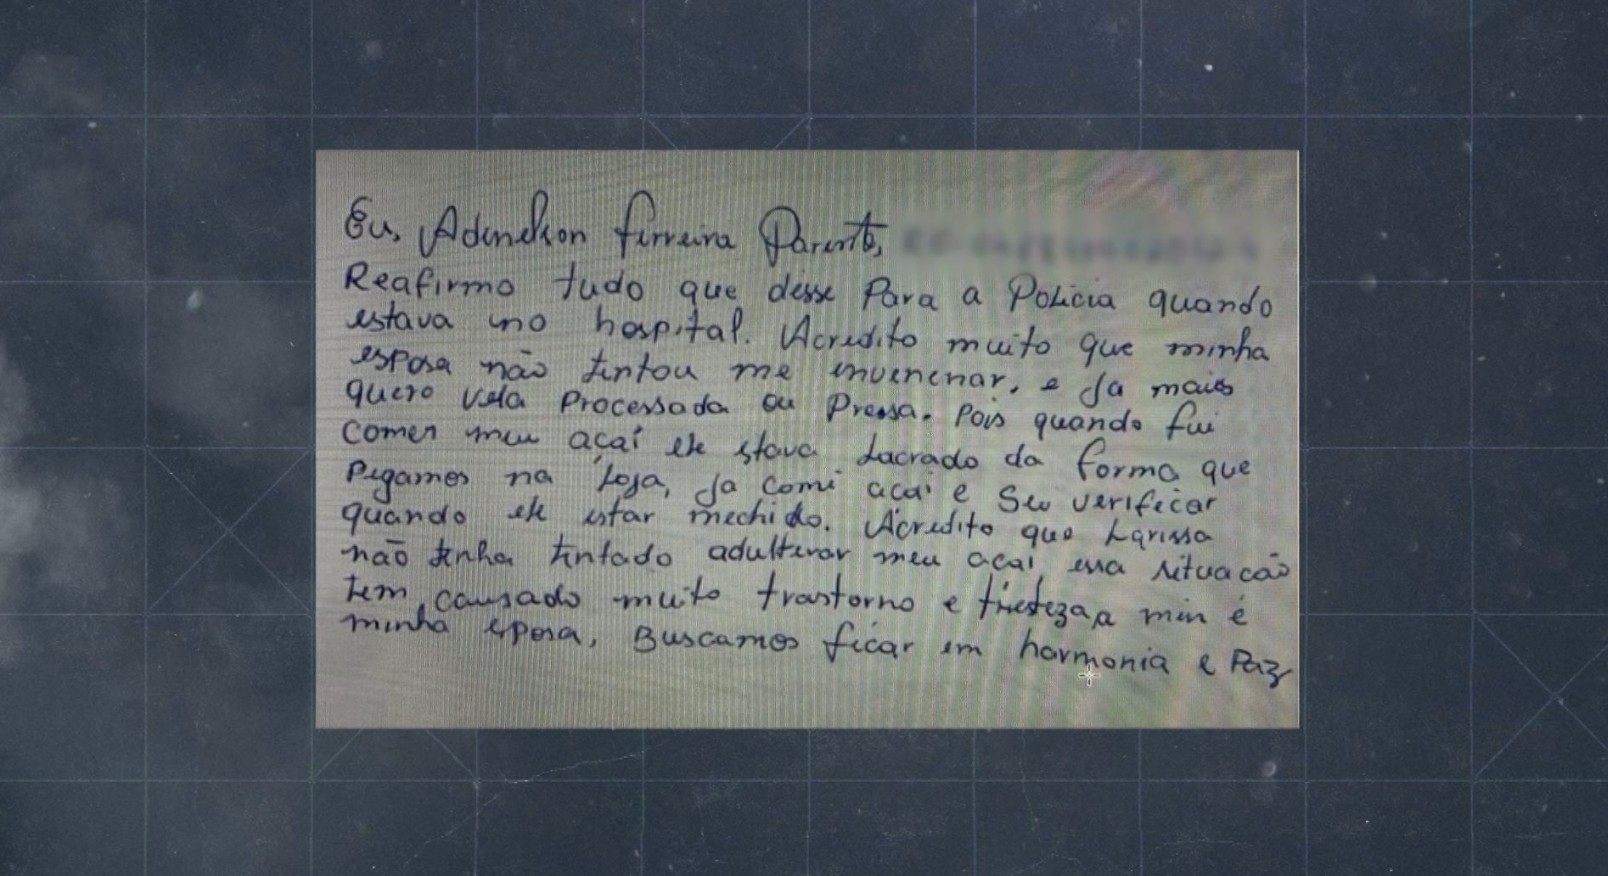 Eu, Adenelson Ferreira Parente,
Reafirmo tudo que desse Para a Policia quando
estava no hospital. Acredito muito que minha
esposa não tentou me envenenar, e Ja mais
quero vela Processada ou Pressa. Pois quando fui
comer meu açaí ele stava Lacrado da forma que
Pegamos na Loja, Ja comi açai e Sei verificar
quando ele estar mechido. Acredito que Larissa
não tenha tentado adulterar meu açai, essa situacão
tem causado muito trastorno e tristeza, a min é
minha esposa, Buscamos ficar em harmonia e Paz